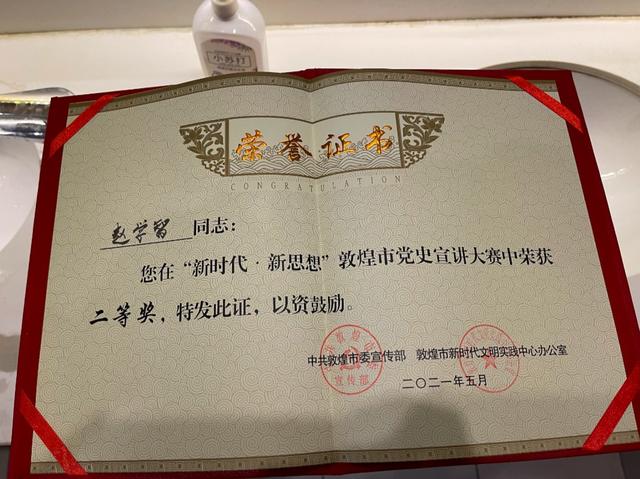 小苏打
荣誉证书
CONGRATULATION
赵学智 同志：
您在“新时代·新思想”敦煌市党史宣讲大赛中荣获
二等奖，特发此证，以资鼓励。
中共敦煌市委宣传部 敦煌市新时代文明实践中心办公室
宣传部
二〇二一年五月